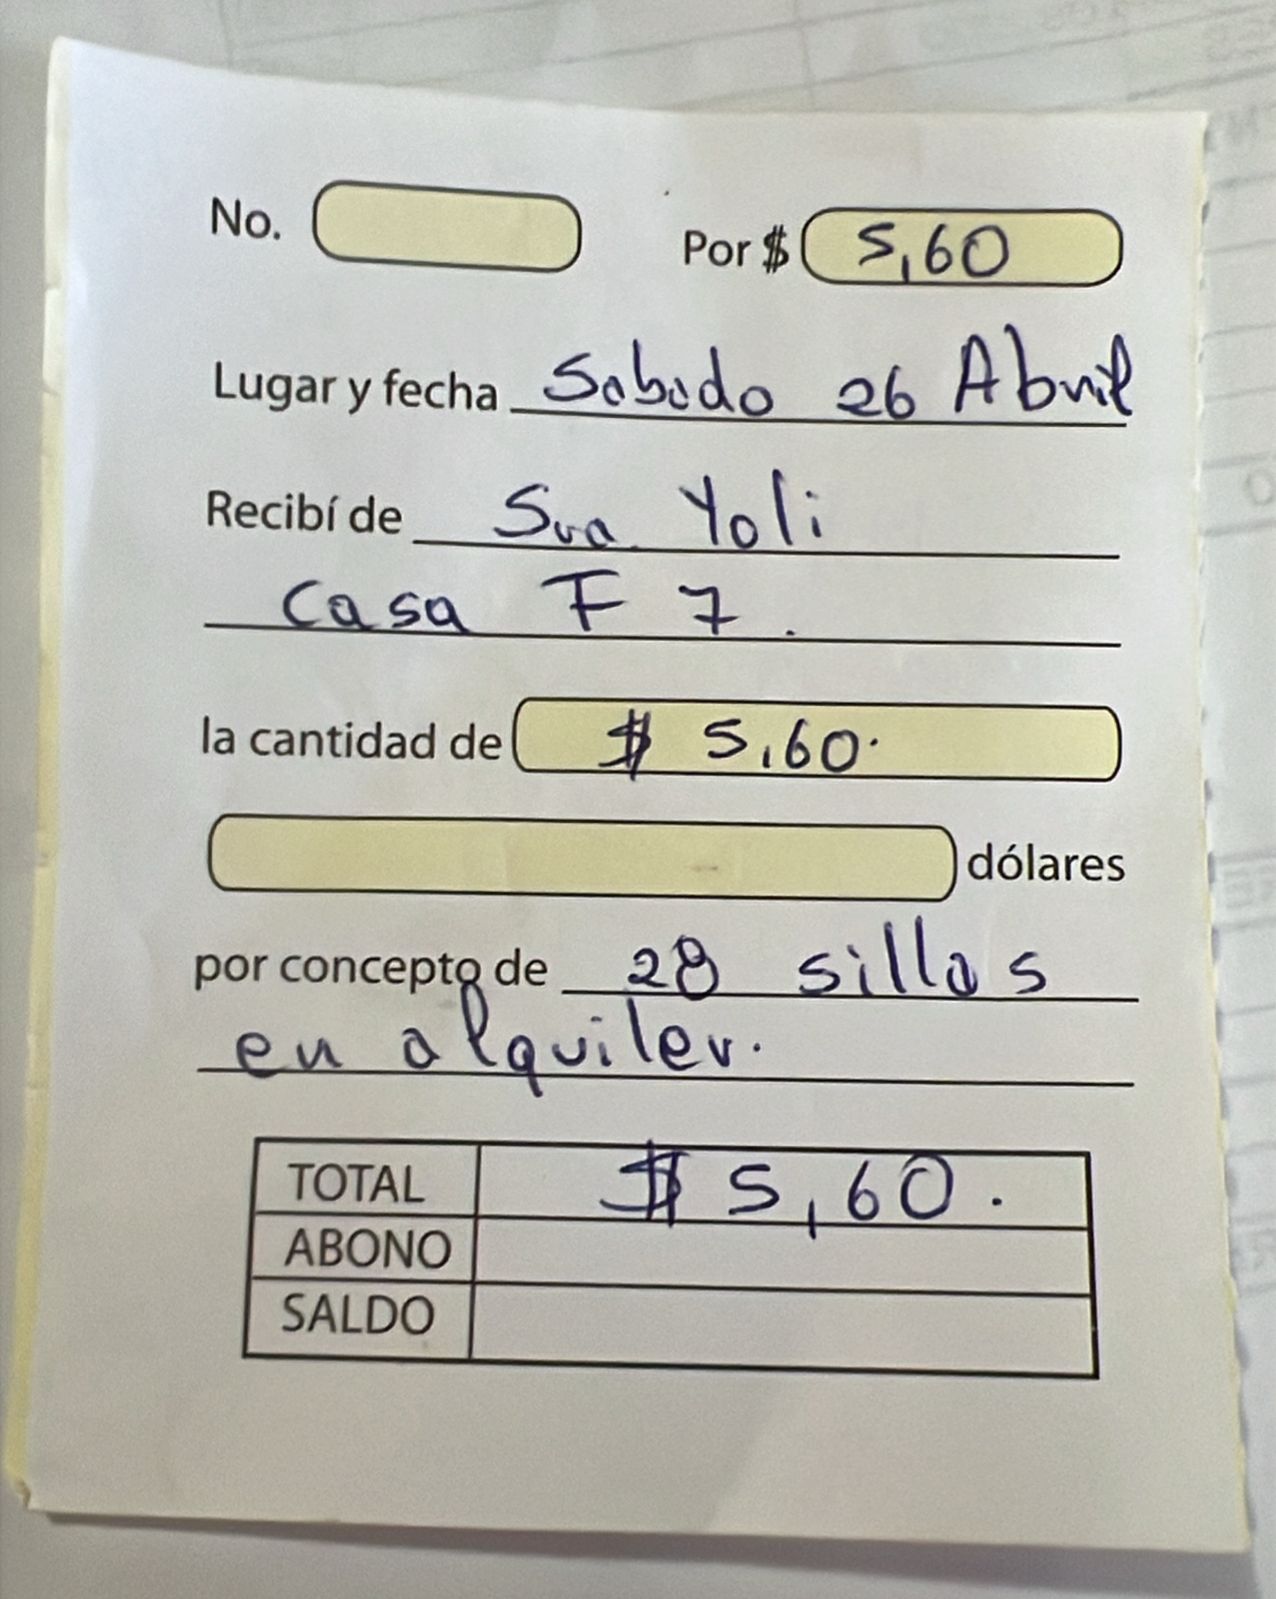 No.
Por $ 5,60
Lugar y fecha Sabado 26 Abril
Recibí de Sra Yoli
Casa F 7.
la cantidad de $ 5,60.
dólares
por concepto de 28 sillas
en alquiler.
TOTAL $ 5,60.
ABONO
SALDO